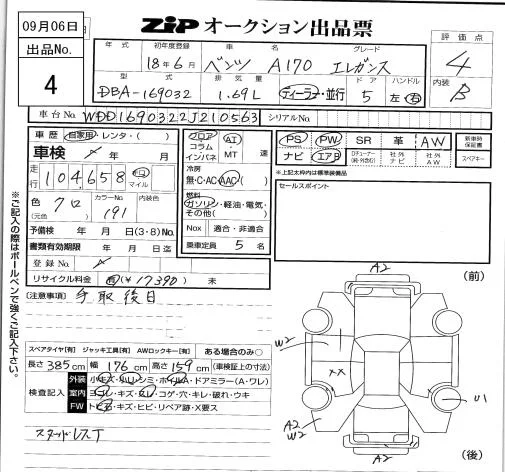 09月06日
ZiP オークション出品票
出品No.
4
年式
初年度登録
18年6月
車名
ベンツ A170
グレード
エレガンス
評価点
4
型式
DBA-169032
排気量
1.69L
ディーラー・並行
ドア
5
ハンドル
左・右
内装
B
車台No.
WDD1690322J210563
シリアルNo.
車歴 自家用・レンタ・( )
車検 年 月
走行 104,658 Km マイル
色(元色) クロ
カラーNo.
191
内装色
予備検 年 月 日(3・8)No.
書類有効期限 年 月 日迄
登録No.
リサイクル料金 有(¥17390) 未
フロア コラム インパネ
AT・MT 速
冷房
無・C・AC・AAC( )
燃料
ガソリン・軽油・電気・その他( )
Nox 適合・非適合
乗車定員 5 名
PS PW SR 革 AW
ナビ エアB Dチューナー(純・外含む) 社外ナビ 社外AW
新車時保証書
スペアキー
※上記太枠内は標準装備品
セールスポイント
[注意事項] 手取後日
※ご記入の際はボールペンで強くご記入下さい。
スペアタイヤ[有] ジャッキ工具[有] AWロックキー[有] ある場合のみ○
長さ 385cm 幅 176cm 高さ 159cm (車検証上の寸法)
検査記入
外装 小キズ・小凹・シミ・ホイルA・ドアミラー(A・ワレ)
室内 ヨゴレ・キズ・スレ・コゲ・穴・キレ・破れ・ウキ
FW トビ石・キズ・ヒビ・リペア跡・X要ス
スタッドレスT
(前)
A2
W2
XX
U1
A2
W2
A2
(後)